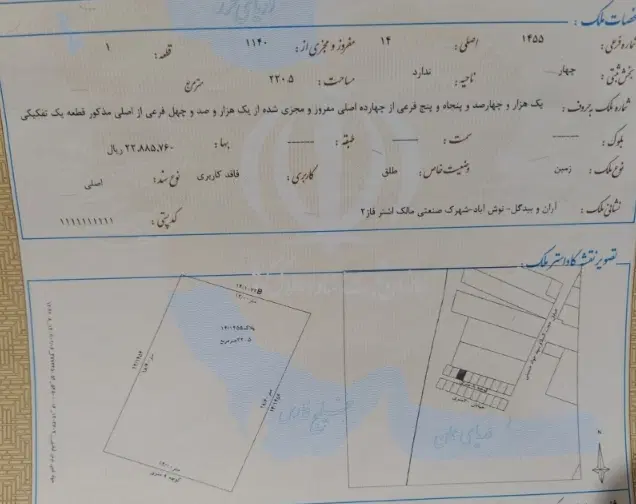 مشخصات ملک :
شماره فرعی : ۱۴۵۵ اصلی : ۱۴ مفروز و مجزی از : ۱۱۴۰ قطعه : ۱
بخش ثبتی : چهار ناحیه : ندارد مساحت : ۲۲۰.۵ مترمربع
شماره ملک بحروف : یک هزار و چهارصد و پنجاه و پنج فرعی از چهارده اصلی مفروز و مجزی شده از یک هزار و صد و چهل فرعی از اصلی مذکور قطعه یک تفکیکی
بلوک : —— سمت : —— طبقه : —— بها : ۲۲،۸۸۵،۷۶۰ ریال
نوع ملک : زمین وضعیت خاص : طلق کاربری : فاقد کاربری نوع سند : اصلی
نشانی ملک : آران و بیدگل - نوش آباد - شهرک صنعتی مالک اشتر فاز۲ کدپستی : ۱۱۱۱۱۱۱۱۱۱
تصویر نقشه کاداستر ملک :
خلیج فارس
دریای عمان